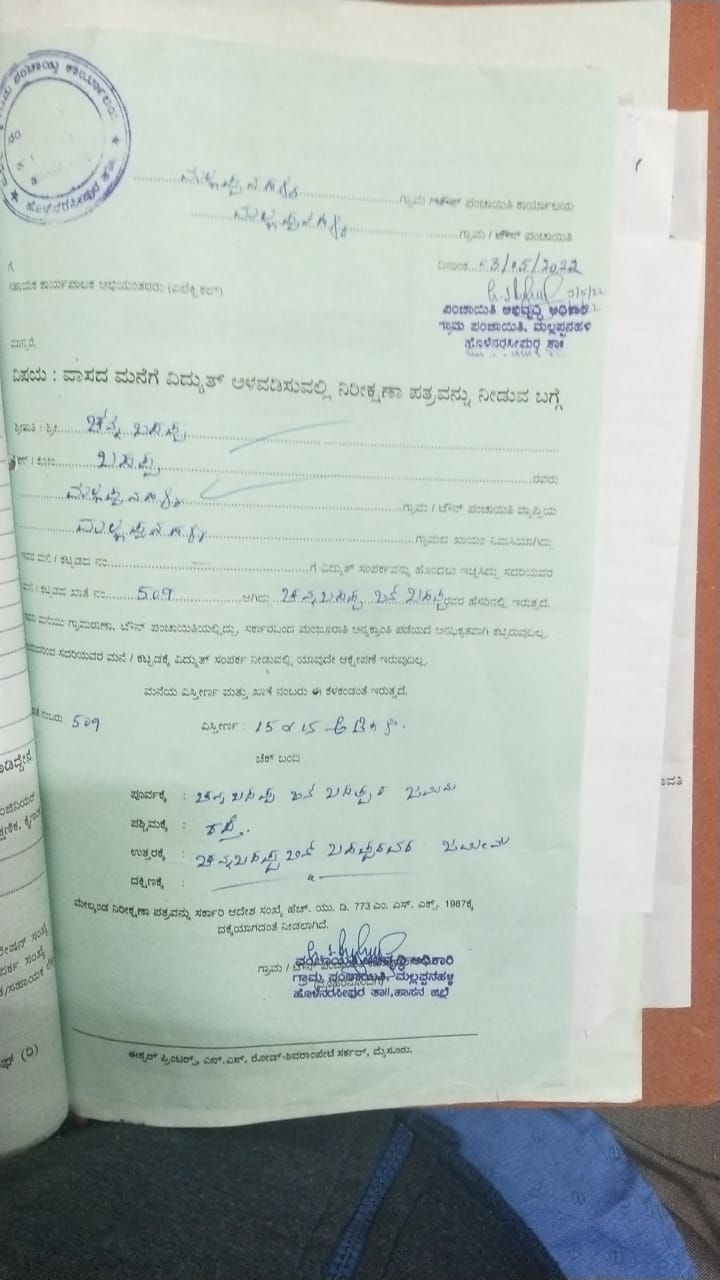 ಪಂಚಾಯ್ತಿ ಕಾರ್ಯಾಲಯ
ಹೊಳೆನರಸೀಪುರ
ಮಲ್ಲಪ್ಪನಹಳ್ಳಿ ಗ್ರಾಮ / ಟೌನ್ ಪಂಚಾಯಿತಿ ಕಾರ್ಯಾಲಯ
ಮಲ್ಲಪ್ಪನಹಳ್ಳಿ ಗ್ರಾಮ / ಟೌನ್ ಪಂಚಾಯಿತಿ
ದಿನಾಂಕ 03/05/2022
ಗೆ
ಕಾರ್ಯಪಾಲಕ ಅಭಿಯಂತರರು (ಎಲೆಕ್ಟ್ರಿಕಲ್)
ಪಂಚಾಯಿತಿ ಅಭಿವೃದ್ಧಿ ಅಧಿಕಾರಿ
ಗ್ರಾಮ ಪಂಚಾಯಿತಿ, ಮಲ್ಲಪ್ಪನಹಳ್ಳಿ
ಹೊಳೆನರಸೀಪುರ ತಾ||
ಮಾನ್ಯರೆ,
ವಿಷಯ : ವಾಸದ ಮನೆಗೆ ವಿದ್ಯುತ್ ಅಳವಡಿಸುವಲ್ಲಿ ನಿರೀಕ್ಷಣಾ ಪತ್ರವನ್ನು ನೀಡುವ ಬಗ್ಗೆ
ಶ್ರೀಮತಿ / ಶ್ರೀ. ಚನ್ನ ಬಸಪ್ಪ
ಕೋಂ. ಬಸಪ್ಪ ರವರು
ಮಲ್ಲಪ್ಪನಹಳ್ಳಿ ಗ್ರಾಮ / ಟೌನ್ ಪಂಚಾಯಿತಿ ವ್ಯಾಪ್ತಿಯ
ಮಲ್ಲಪ್ಪನಹಳ್ಳಿ ಗ್ರಾಮದ ಖಾಯಂ ನಿವಾಸಿಯಾಗಿದ್ದು
ಇವರ ಮನೆ / ಕಟ್ಟಡದ ನಂ. ಗೆ ವಿದ್ಯುತ್ ಸಂಪರ್ಕವನ್ನು ಹೊಂದಲು ಇಚ್ಛಿಸಿದ್ದು ಸದರಿಯವರ
ಮನೆ / ಕಟ್ಟಡದ ಖಾತೆ ನಂ. 509 ಆಗಿದ್ದು ಚನ್ನಬಸಪ್ಪ ಬಿನ್ ಬಸಪ್ಪ ರವರ ಹೆಸರಿನಲ್ಲಿ ಇರುತ್ತದೆ.
ಮನೆಯು ಗ್ರಾಮಠಾಣಾ, ಟೌನ್ ಪಂಚಾಯಿತಿಯಲ್ಲಿದ್ದು, ಸರ್ಕಾರದಿಂದ ಮಂಜೂರಾತಿ ಅನ್ಯಕ್ರಾಂತಿ ಪಡೆಯದೆ ಅನಧಿಕೃತವಾಗಿ ಕಟ್ಟಿರುವುದಿಲ್ಲ.
ಸದರಿಯವರ ಮನೆ / ಕಟ್ಟಡಕ್ಕೆ ವಿದ್ಯುತ್ ಸಂಪರ್ಕ ನೀಡುವಲ್ಲಿ ಯಾವುದೇ ಆಕ್ಷೇಪಣೆ ಇರುವುದಿಲ್ಲ.
ಮನೆಯ ವಿಸ್ತೀರ್ಣ ಮತ್ತು ಖಾತೆ ನಂಬರು ಈ ಕೆಳಕಂಡಂತೆ ಇರುತ್ತದೆ.
ಖಾತೆ ನಂಬರು : 509 ವಿಸ್ತೀರ್ಣ : 15 x 15 ಅಡಿಗಳು.
ಚೆಕ್ ಬಂದಿ
ಪೂರ್ವಕ್ಕೆ : ಚನ್ನಬಸಪ್ಪ ಬಿನ್ ಬಸಪ್ಪರ ಜಮೀನು
ಪಶ್ಚಿಮಕ್ಕೆ : ರಸ್ತೆ.
ಉತ್ತರಕ್ಕೆ : ಚನ್ನಬಸಪ್ಪ ಬಿನ್ ಬಸಪ್ಪರವರ ಜಮೀನು
ದಕ್ಷಿಣಕ್ಕೆ : — " —
ಮೇಲ್ಕಂಡ ನಿರೀಕ್ಷಣಾ ಪತ್ರವನ್ನು ಸರ್ಕಾರಿ ಆದೇಶ ಸಂಖ್ಯೆ ಹೆಚ್. ಯು. ಡಿ. 773 ಎಂ. ಎಸ್. ಎಕ್ಸ್. 1987ಕ್ಕೆ
ದಕ್ಕೆಯಾಗದಂತೆ ನೀಡಲಾಗಿದೆ.
ಪಂಚಾಯಿತಿ ಅಭಿವೃದ್ಧಿ ಅಧಿಕಾರಿ
ಗ್ರಾಮ ಪಂಚಾಯಿತಿ, ಮಲ್ಲಪ್ಪನಹಳ್ಳಿ
ಹೊಳೆನರಸೀಪುರ ತಾ||, ಹಾಸನ ಜಿಲ್ಲೆ
ಈಶ್ವರ್ ಪ್ರಿಂಟರ್ಸ್, ಎನ್.ಎಸ್. ರೋಡ್-ಶಿವರಾಂಪೇಟೆ ಸರ್ಕಲ್, ಮೈಸೂರು.